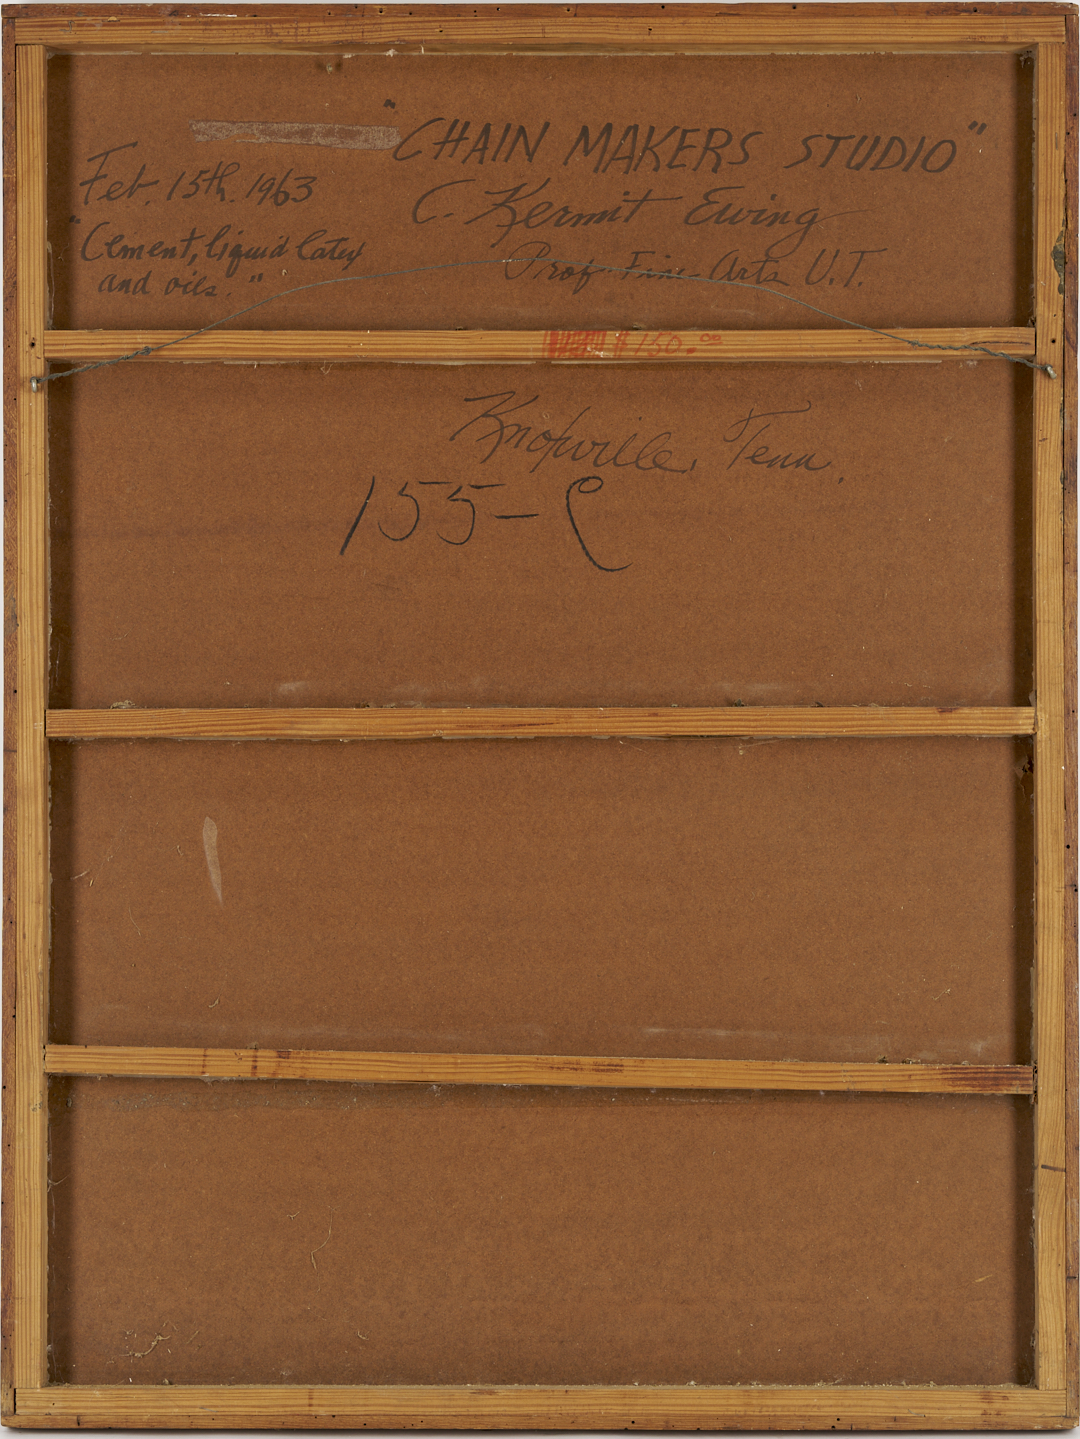 "CHAIN MAKERS STUDIO"
Feb. 15th. 1963
C. Kermit Ewing
"Cement, liquid latex
and oils."
Prof Fine Arts U.T.
$150.00
Knoxville, Tenn.
155-C